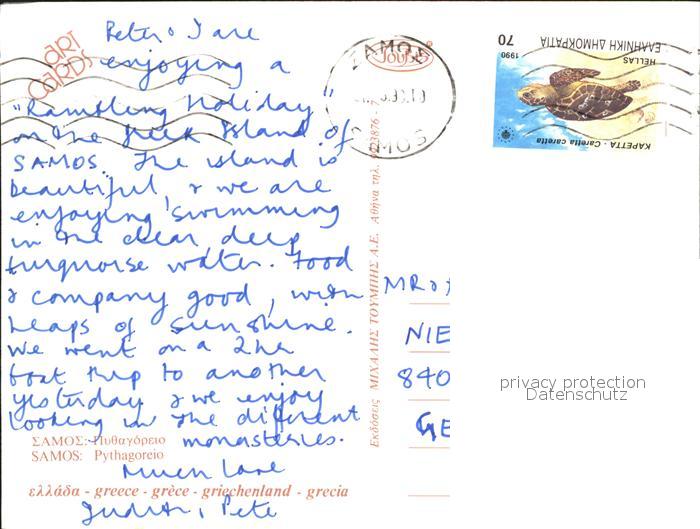 Peter & I are
enjoying a
"Rambling Holiday"
on the Greek Island of
SAMOS. The island is
beautiful, & we are
enjoying swimming
in the clear deep
turquoise water. Food
& company good, with
heaps of sunshine.
We went on a 2hr
boat trip to another
yesterday & we enjoy
looking in the different
monasteries.
Much Love
Judith, Pete
ART
CARDS
ΣΑΜΟΣ: Πυθαγόρειο
SAMOS: Pythagoreio
ελλάδα - greece - grèce - griechenland - grecia
Εκδόσεις ΜΙΧΑΛΗΣ ΤΟΥΜΠΗΣ Α.Ε. Αθήνα τηλ. 9923876-7
Toubis
ΣΑΜΟΣ
SAMOS
70
ΕΛΛΗΝΙΚΗ ΔΗΜΟΚΡΑΤΙΑ
HELLAS
1990
ΚΑΡΕΤΤΑ - Caretta caretta
MR &
NIE
840
GE
privacy protection
Datenschutz